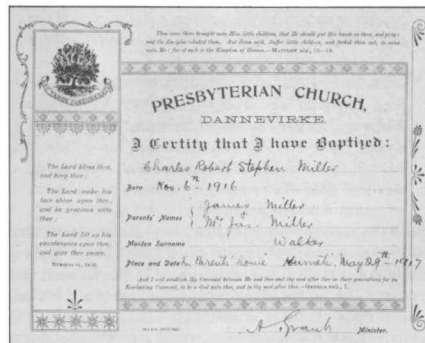 Then were there brought unto Him little children, that He should put His hands on them, and pray;
and the disciples rebuked them. But Jesus said, Suffer little children, and forbid them not, to come
unto Me: for of such is the Kingdom of Heaven.—MATTHEW xix., 13-14.
PRESBYTERIAN CHURCH,
DANNEVIRKE.
I Certify that I have Baptized:
Charles Robert Stephen Miller
Born Nov. 6th 1916
Parents' Names { James Miller
Mrs Jas. Miller
Maiden Surname Walker
Place and Date Parents' home Kumeti, May 29th 1917
And I will establish My Covenant between Me and thee and thy seed after thee in their generations for an
Everlasting Covenant, to be a God unto thee, and to thy seed after thee.—GENESIS xvii., 7.
A Grant Minister.
The Lord bless thee,
and keep thee:
The Lord make his
face shine upon thee,
and be gracious unto
thee:
The Lord lift up his
countenance upon thee,
and give thee peace.